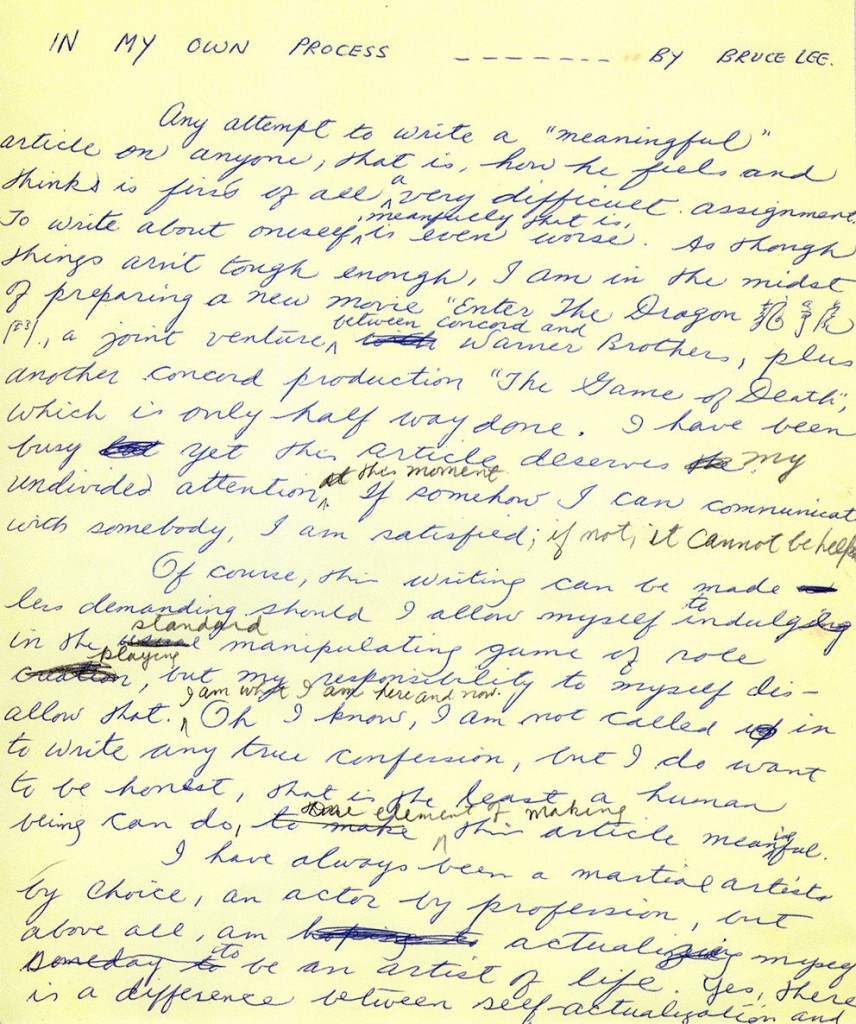 IN MY OWN PROCESS -------- BY BRUCE LEE.
Any attempt to write a "meaningful"
article on anyone, that is, how he feels and
thinks is first of all a very difficult assignment.
To write about oneself, meanfully that is, is even worse. As though
things arn't tough enough, I am in the midst
of preparing a new movie "Enter The Dragon
, a joint venture between concord and Warner Brothers, plus
another concord production "The Game of Death",
which is only half way done. I have been
busy yet this article deserves my
undivided attention at this moment If somehow I can communicat
with somebody, I am satisfied; if not, it cannot be helpe
Of course, this writing can be made
less demanding should I allow myself to indulg
in the standard manipulating game of role
playing, but my responsibility to myself dis-
allow that. I am what I am here and now. Oh I know, I am not called in
to write any true confession, but I do want
to be honest, that is the least a human
being can do, to make element of making this article meaningful.
I have always been a martial artist
by choice, an actor by profession, but
above all, am actualizing myself
to be an artist of life. Yes, there
is a difference between self-actualization and